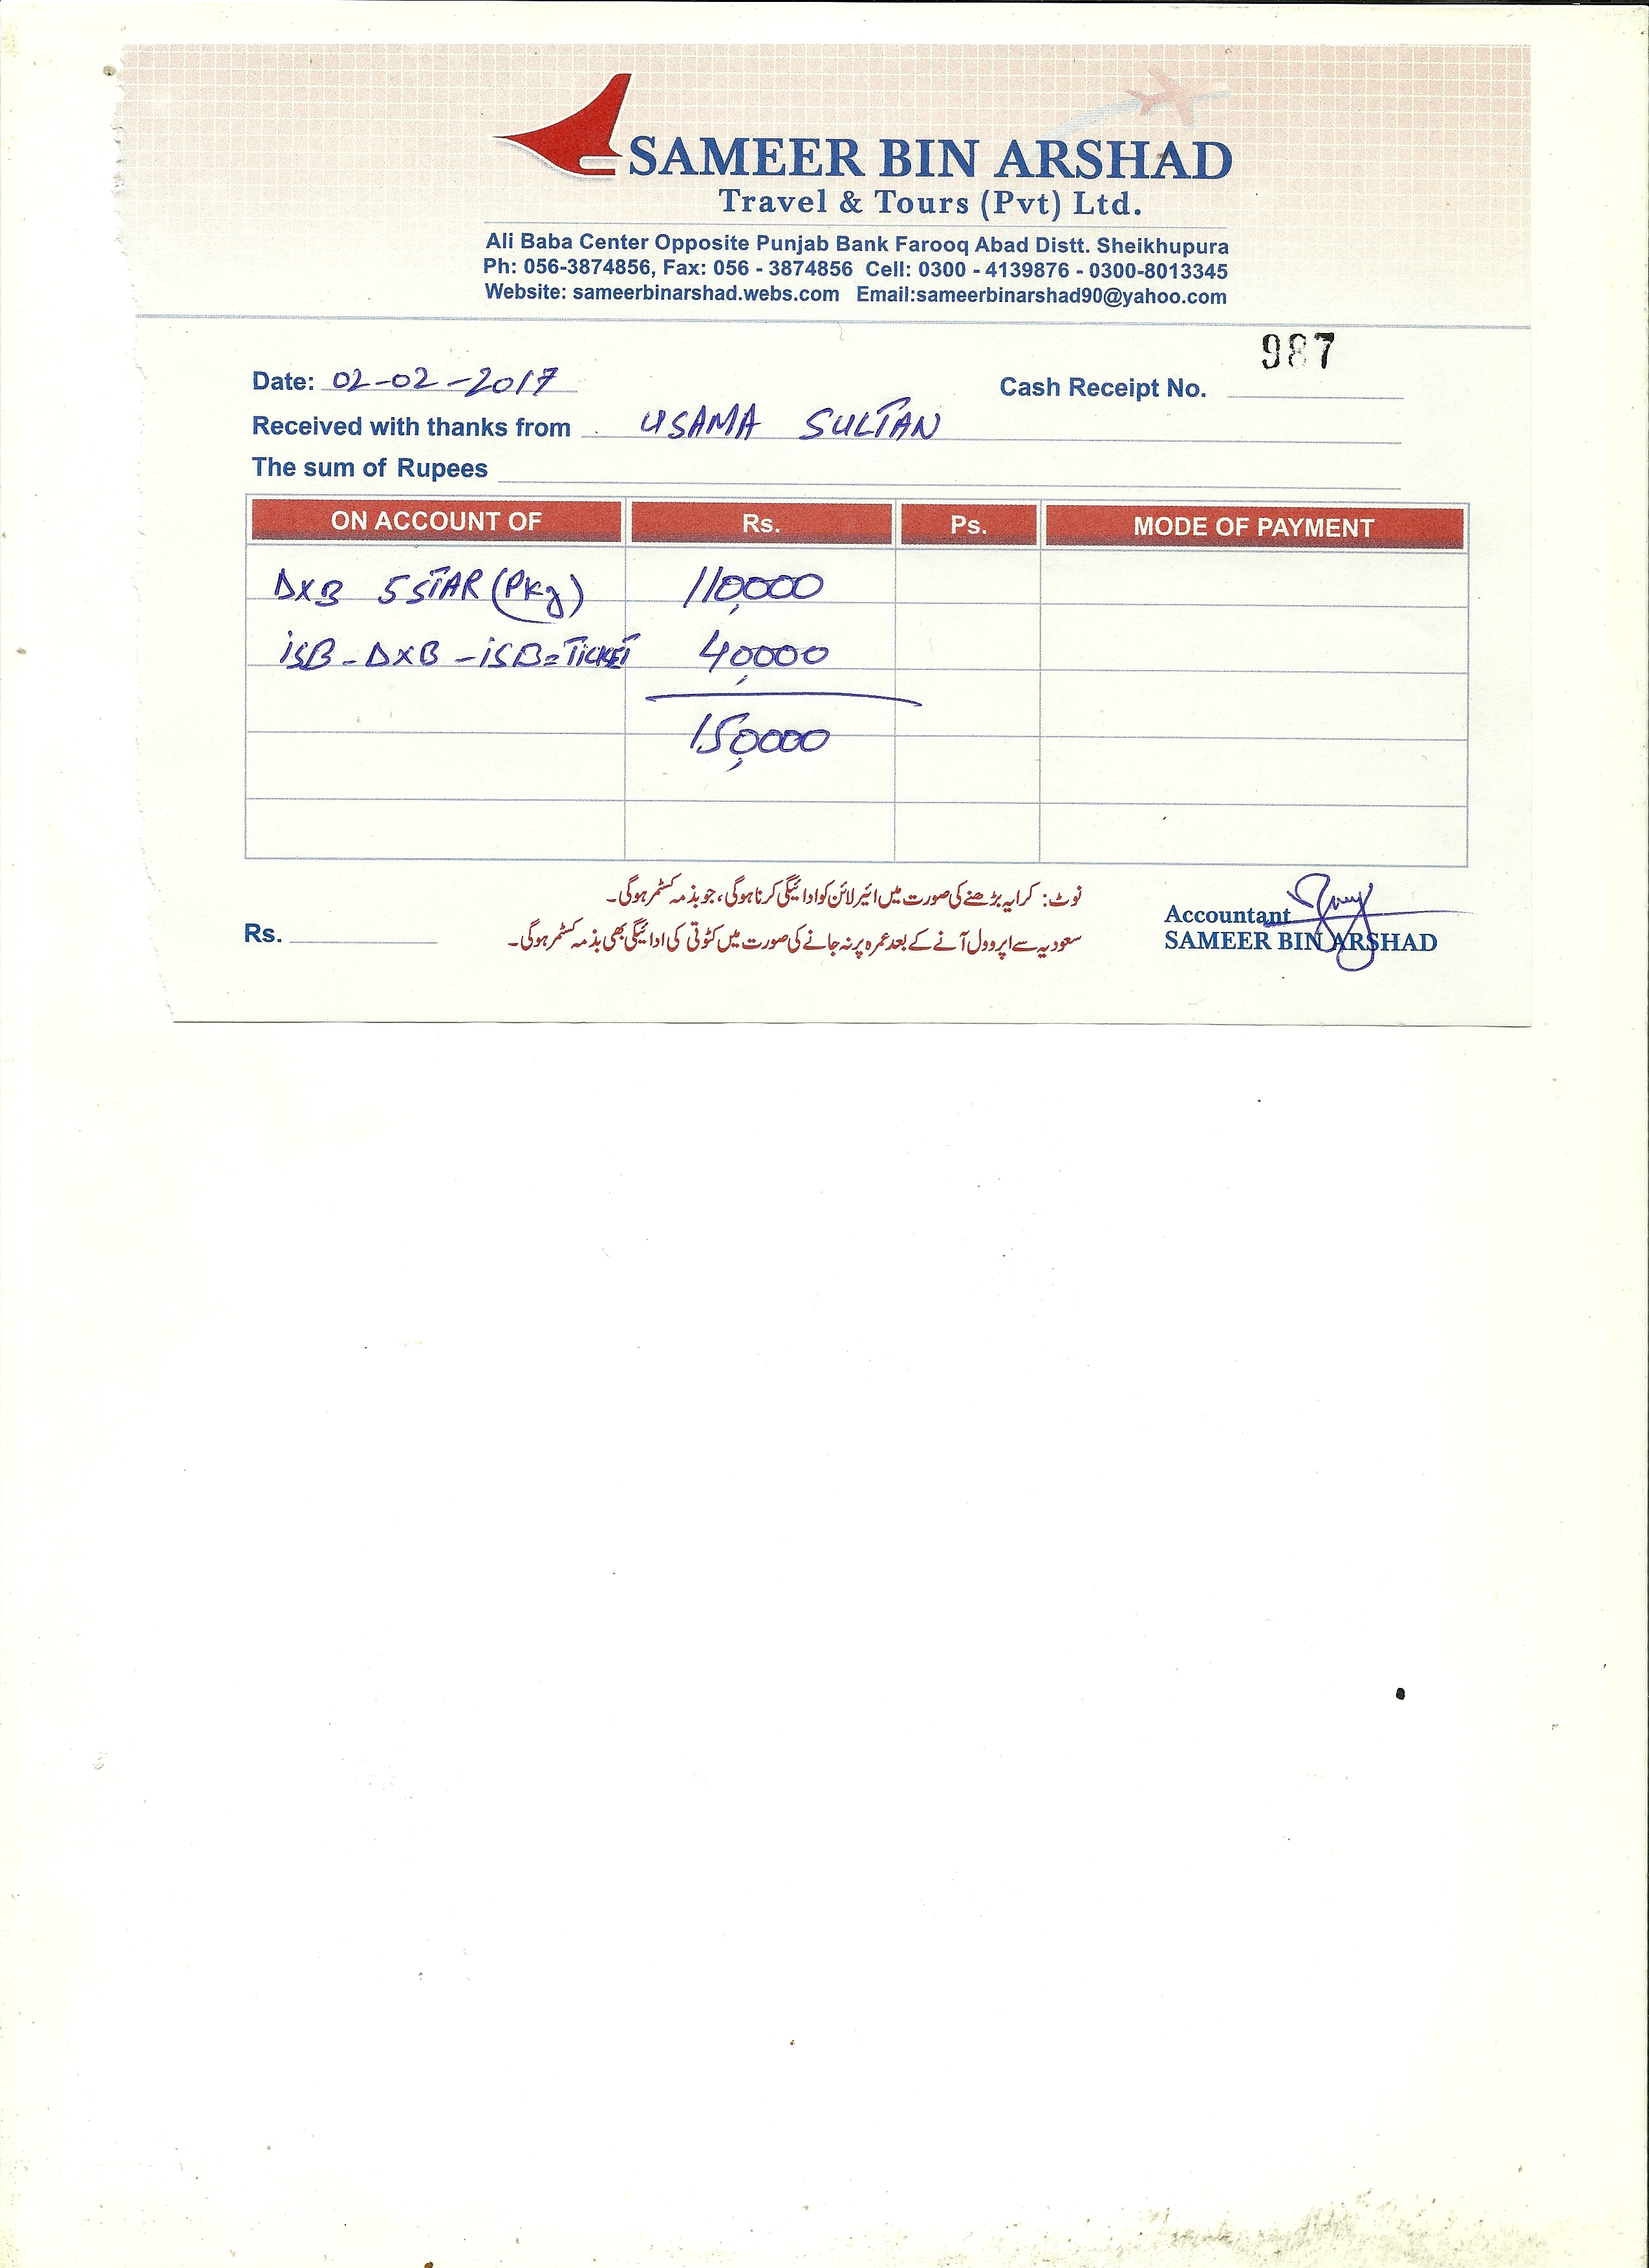 SAMEER BIN ARSHAD
Travel & Tours (Pvt) Ltd.
Ali Baba Center Opposite Punjab Bank Farooq Abad Distt. Sheikhupura
Ph: 056-3874856, Fax: 056 - 3874856 Cell: 0300 - 4139876 - 0300-8013345
Website: sameerbinarshad.webs.com Email:sameerbinarshad90@yahoo.com
987
Date: 02-02-2017 Cash Receipt No.
Received with thanks from USAMA SULTAN
The sum of Rupees
ON ACCOUNT OF Rs. Ps. MODE OF PAYMENT
DXB 5 STAR (Pkg) 110,000
iSB - DXB - iSB = TICKET 40,000
150,000
نوٹ: کرایہ بڑھنے کی صورت میں ائیر لائن کو ادائیگی کرنا ہوگی، جو بذمہ کسٹمر ہوگی۔
سعودیہ سے اپروول آنے کے بعد عمرہ پر نہ جانے کی صورت میں کٹوتی کی ادائیگی بھی بذمہ کسٹمر ہوگی۔
Rs.
Accountant
SAMEER BIN ARSHAD